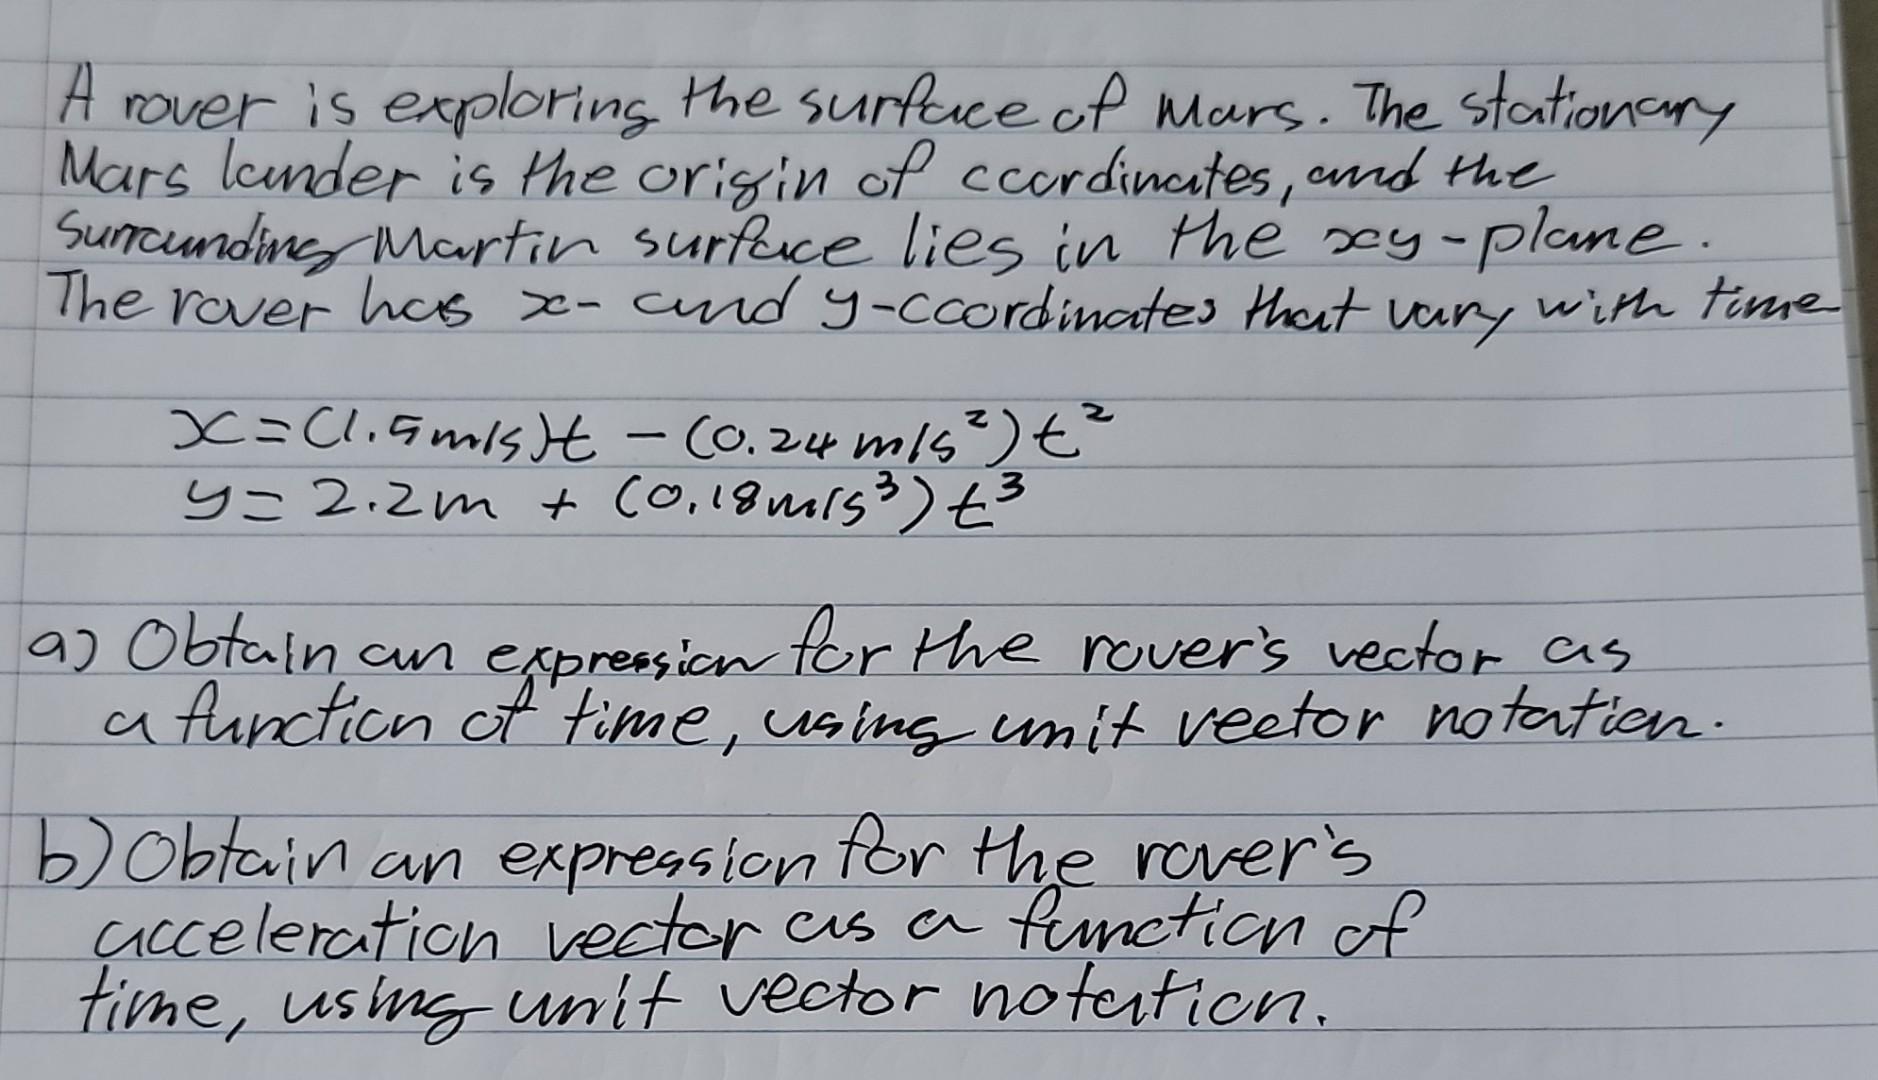 A rover is exploring the surface of Mars. The stationary
Mars lander is the origin of coordinates, and the
surrounding Martin surface lies in the xy-plane.
The rover has x- and y-coordinates that vary with time
x=(1.5m/s)t - (0.24 m/s²)t²
y= 2.2m + (0.18m/s³)t³
a) Obtain an expression for the rover's vector as
a function of time, using unit vector notation.
b) Obtain an expression for the rover's
acceleration vector as a function of
time, using unit vector notation.